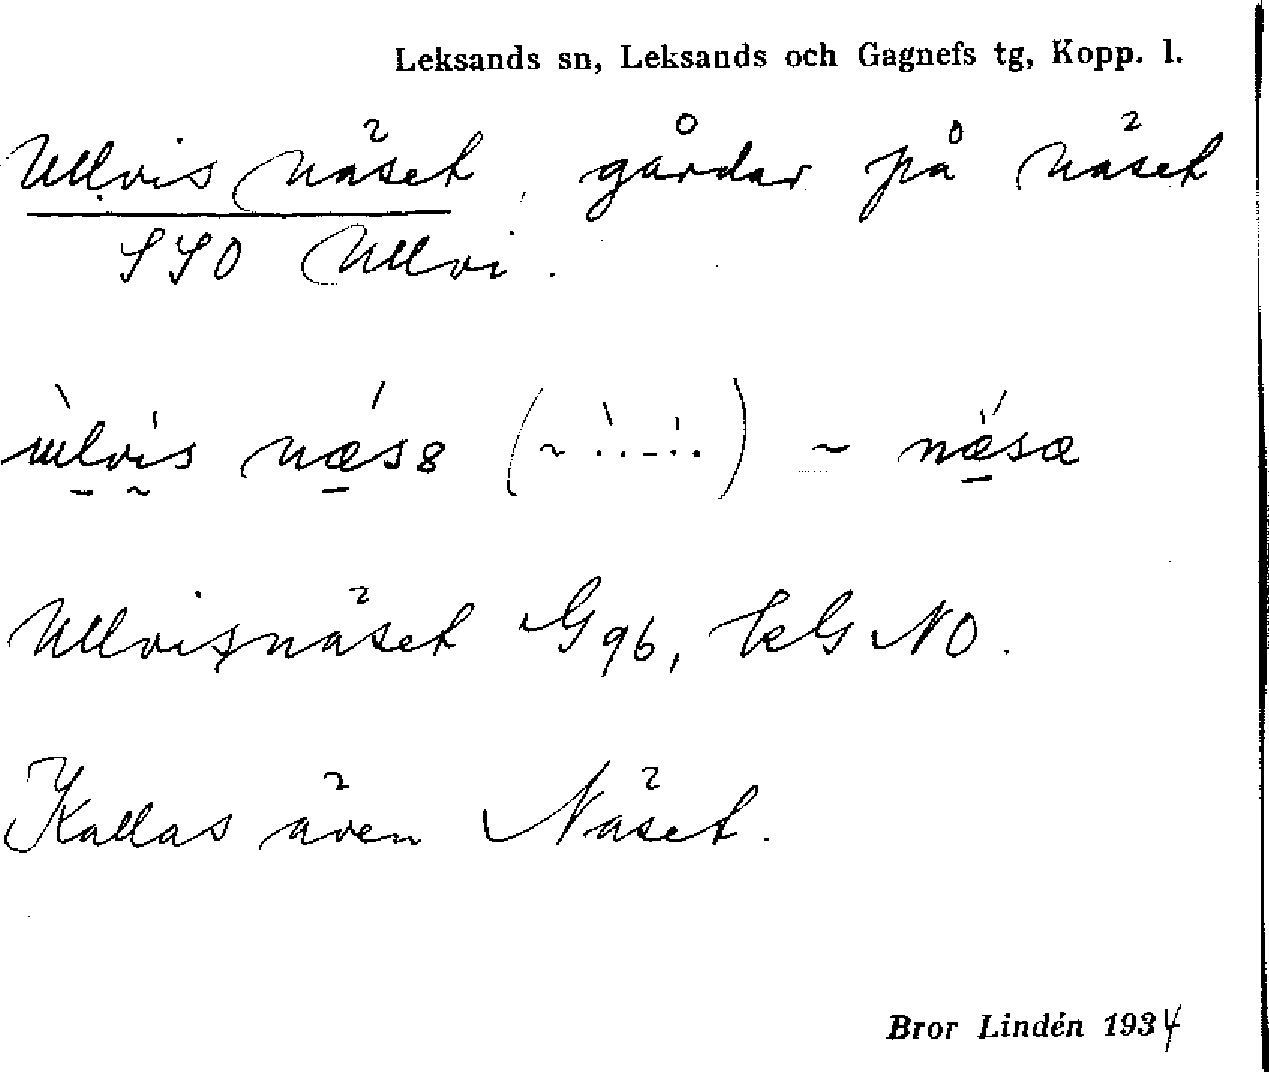 Leksands sn, Leksands och Gagnefs tg, Kopp. l.
Ullvis näset, gårdar på näset
SSO Ullvi.
ùlvis næ̀s (~ ) ~ næ̀sæ
Ullvisnäset G 96, kG NO.
Kallas även Näset.
Bror Lindén 1934